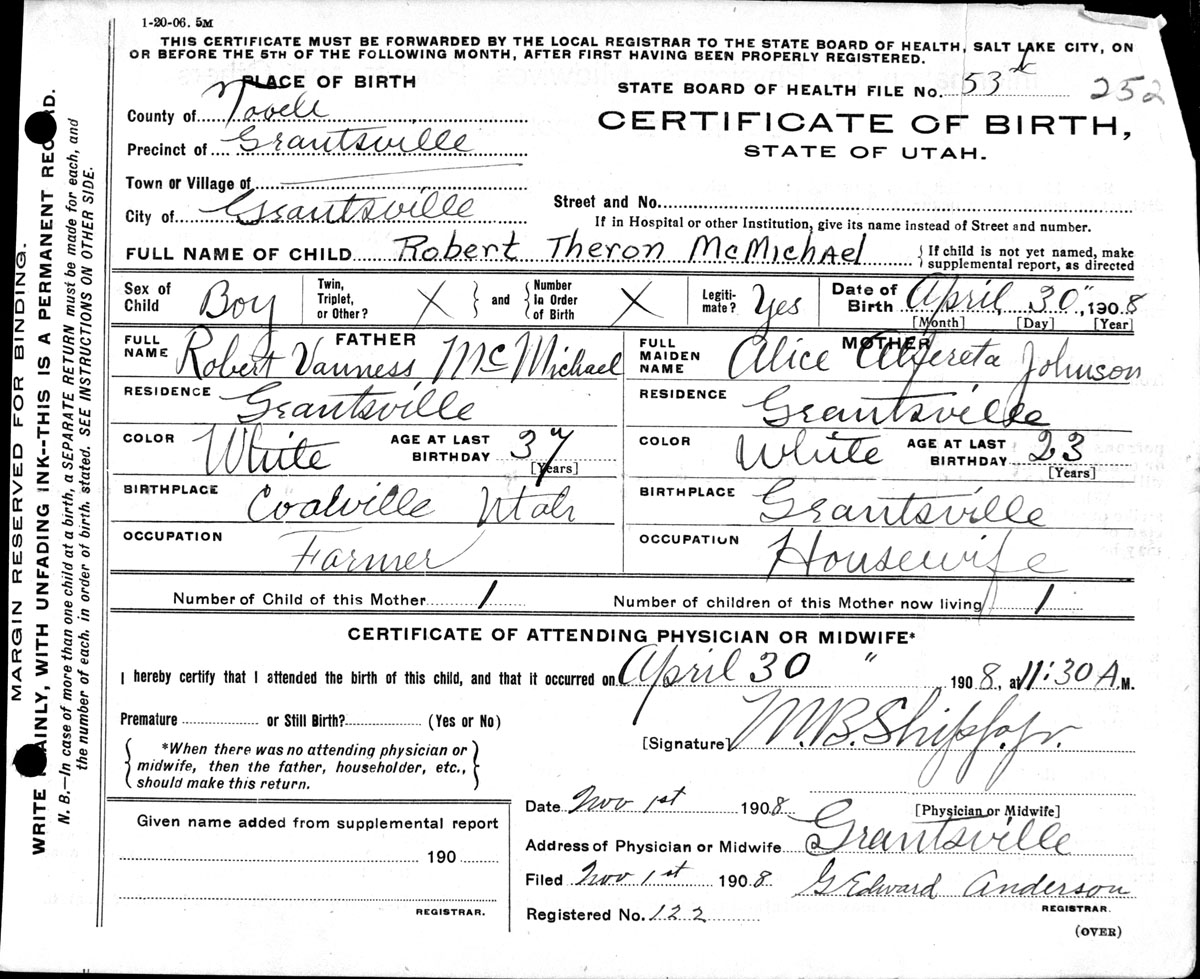 1-20-06. 5M
THIS CERTIFICATE MUST BE FORWARDED BY THE LOCAL REGISTRAR TO THE STATE BOARD OF HEALTH, SALT LAKE CITY, ON
OR BEFORE THE 5TH OF THE FOLLOWING MONTH, AFTER FIRST HAVING BEEN PROPERLY REGISTERED.
PLACE OF BIRTH
STATE BOARD OF HEALTH FILE No. 53 252
County of
Precinct of Grantsville
CERTIFICATE OF BIRTH,
STATE OF UTAH.
Town or Village of
City of Grantsville
Street and No.
If in Hospital or other Institution, give its name instead of Street and number.
FULL NAME OF CHILD Robert Theron McMichael { If child is not yet named, make
supplemental report, as directed
Sex of Child Boy Twin, Triplet, or Other? X } and { Number In Order of Birth X Legiti-mate? Yes Date of Birth April 30", 1908
[Month] [Day] [Year]
FATHER
FULL NAME Robert Vanness McMichael
RESIDENCE Grantsville
COLOR White AGE AT LAST BIRTHDAY 37
[Years]
BIRTHPLACE Coalville Utah
OCCUPATION Farmer
MOTHER
FULL MAIDEN NAME Alice Alfereta Johnson
RESIDENCE Grantsville
COLOR White AGE AT LAST BIRTHDAY 23
[Years]
BIRTHPLACE Grantsville
OCCUPATION Housewife
Number of Child of this Mother 1 Number of children of this Mother now living 1
CERTIFICATE OF ATTENDING PHYSICIAN OR MIDWIFE*
I hereby certify that I attended the birth of this child, and that it occurred on April 30 " , 1908, at 11:30 A.M.
Premature or Still Birth? (Yes or No)
{ *When there was no attending physician or
midwife, then the father, householder, etc.,
should make this return. }
[Signature] M.B. Shipp Jr.
[Physician or Midwife]
Given name added from supplemental report
190
REGISTRAR.
Date Nov 1st 1908
Address of Physician or Midwife Grantsville
Filed Nov 1st 1908 G Edward Anderson
REGISTRAR.
Registered No. 122
(OVER)
MARGIN RESERVED FOR BINDING.
WRITE PLAINLY, WITH UNFADING INK--THIS IS A PERMANENT RECORD.
N. B.—In case of more than one child at a birth, a SEPARATE RETURN must be made for each, and
the number of each, in order of birth, stated. SEE INSTRUCTIONS ON OTHER SIDE.